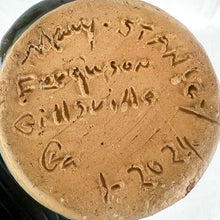 Mary · STANLEY
Ferguson
Gillsville
Ga
1-2024